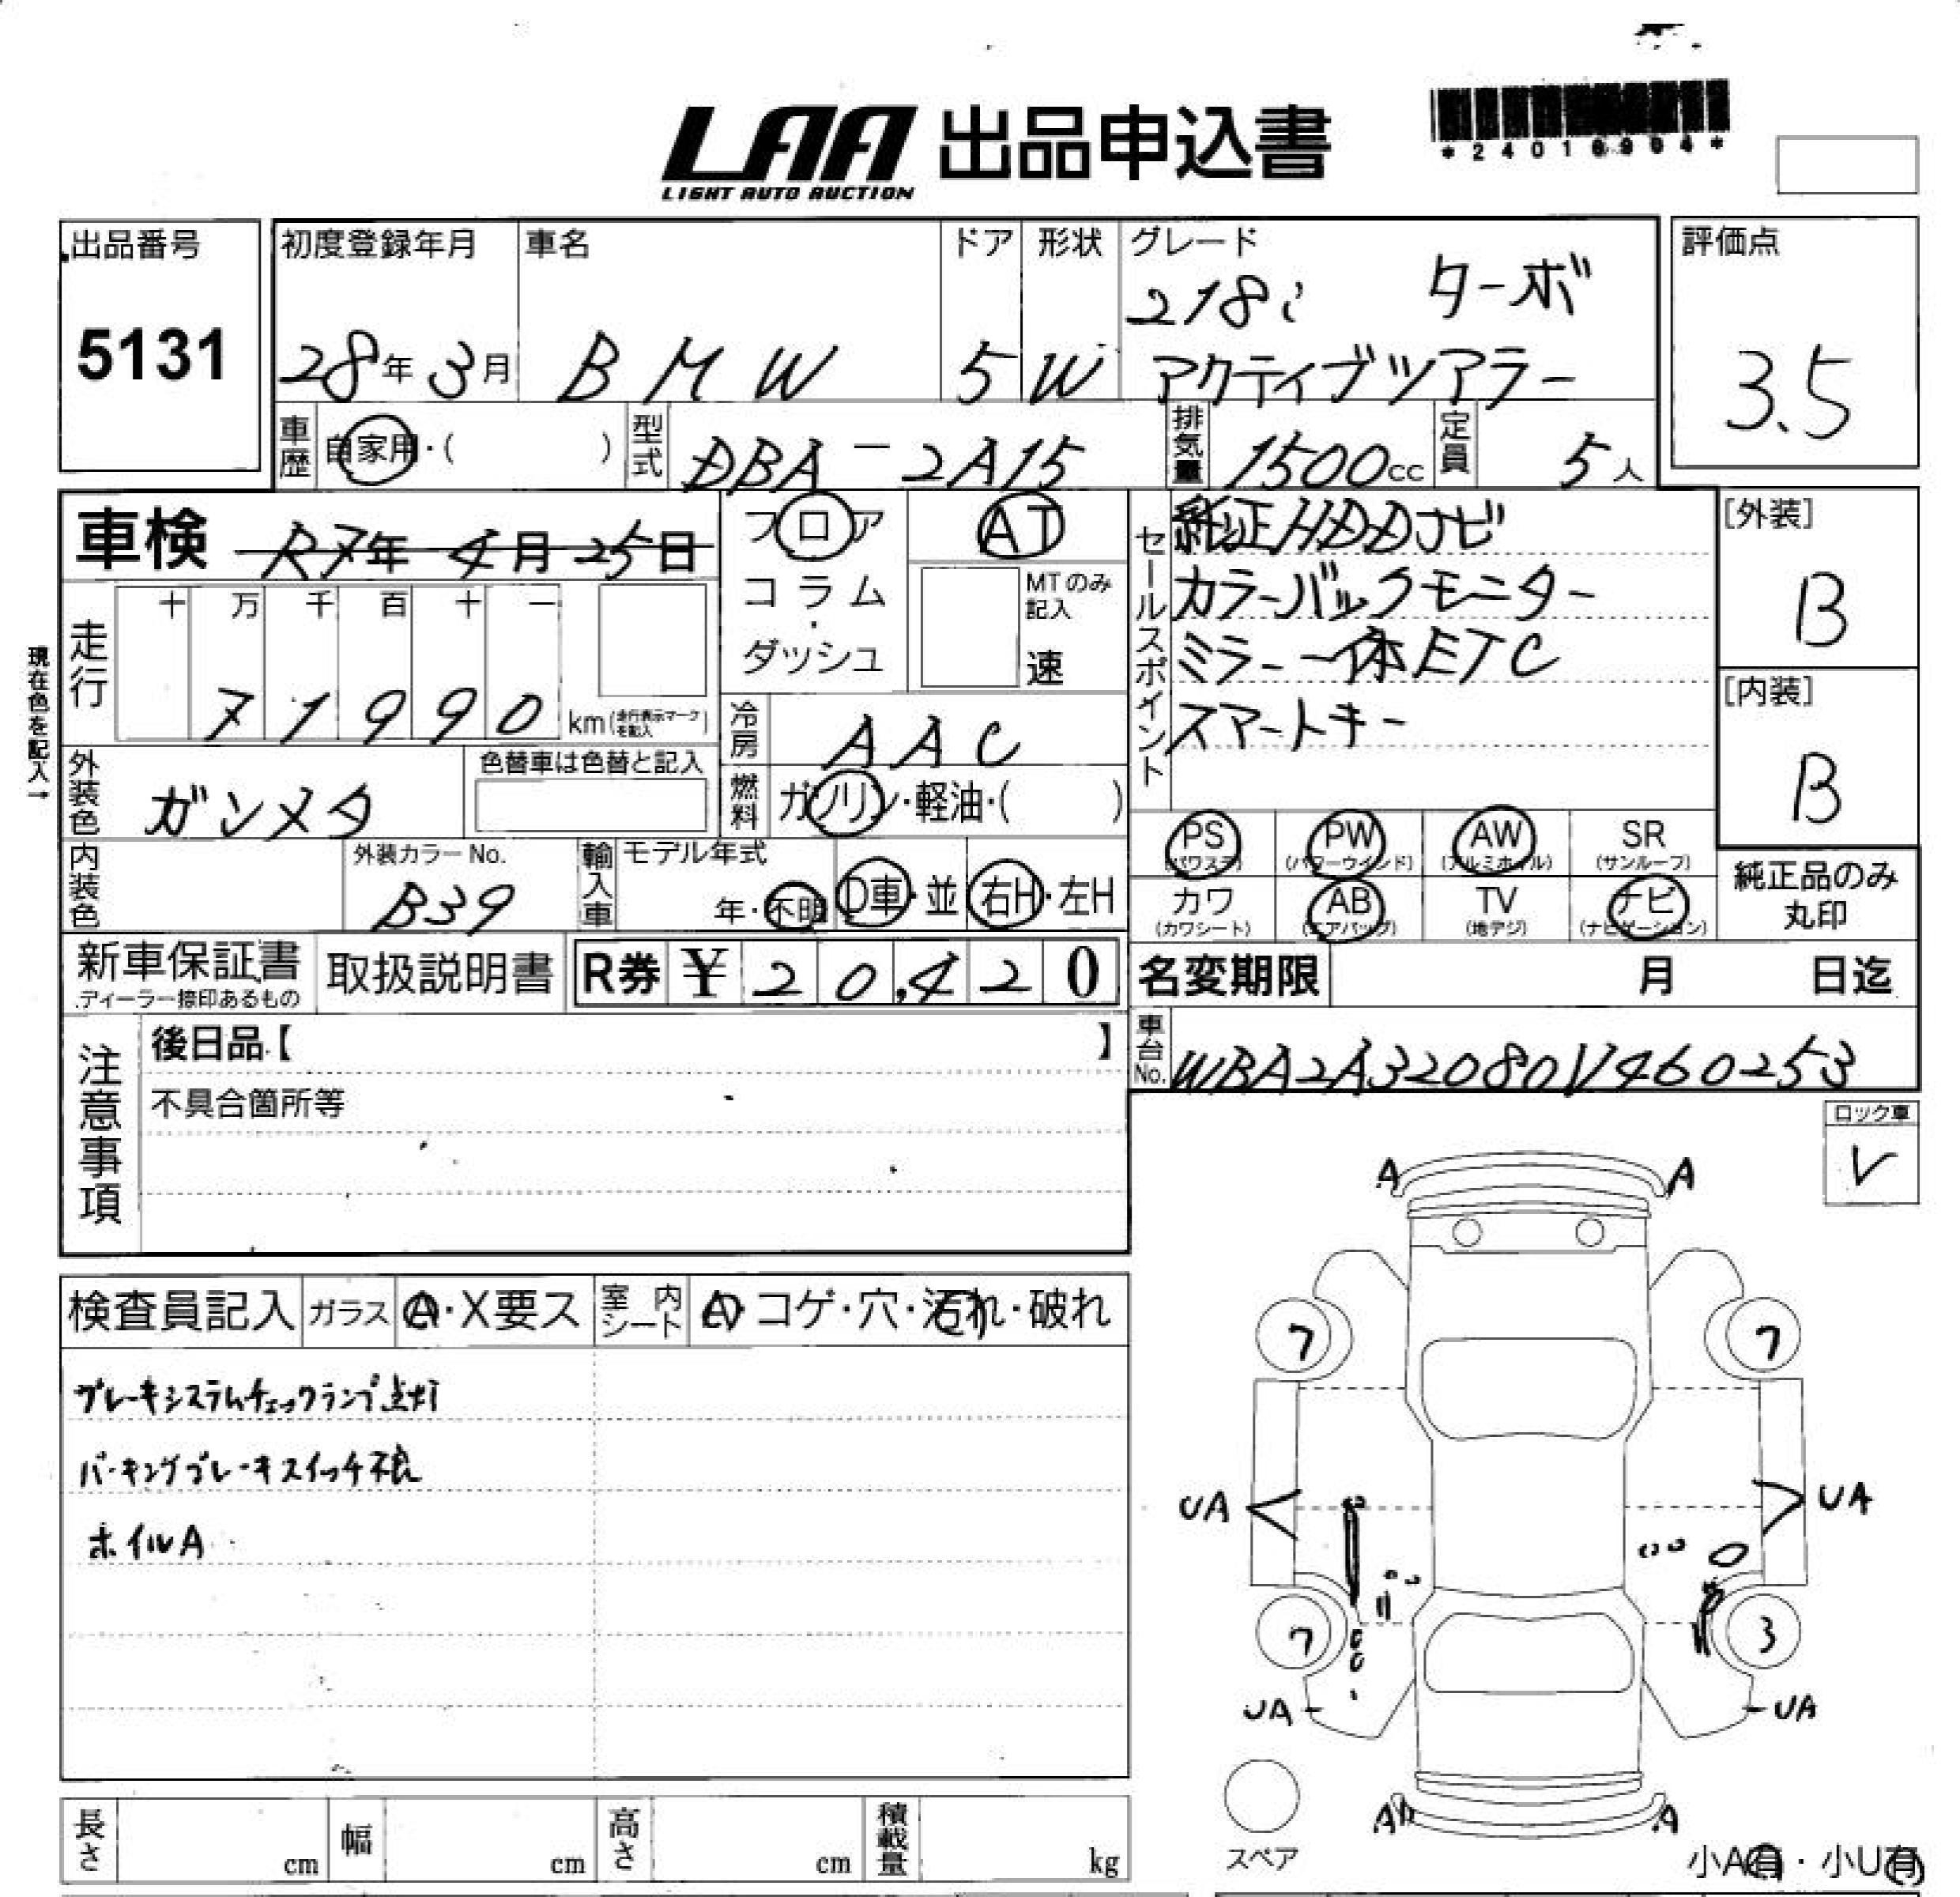 LAA 出品申込書
LIGHT AUTO AUCTION
出品番号
5131
初度登録年月
28年 3月
車名
BMW
ドア
5
形状
W
グレード
218i ターボ
アクティブツアラー
評価点
3.5
車歴
自家用・( )
型式
DBA-2A15
排気量
1500cc
定員
5人
車検 R7年 4月 25日
フロア
コラム
・
ダッシュ
AT
MTのみ
記入
速
走行
十 万 千 百 十 一
7 1 9 9 0
km(走行表示マークを記入)
現在色を記入→
冷房
AAC
燃料
ガソリン・軽油・( )
外装色
ガンメタ
色替車は色替と記入
内装色
外装カラーNo.
B39
輸入車
モデル年式
年・不明
D車・並
右H・左H
セールスポイント
純正HDDナビ
カラーバックモニター
ミラー一体ETC
スマートキー
[外装]
B
[内装]
B
PS
(パワステ)
PW
(パワーウインド)
AW
(アルミホイル)
SR
(サンルーフ)
カワ
(カワシート)
AB
(エアバッグ)
TV
(地デジ)
ナビ
(ナビゲーション)
純正品のみ
丸印
新車保証書
ディーラー捺印あるもの
取扱説明書
R券 ¥ 20,420
名変期限 月 日迄
車台No.
WBA2A32080V460253
注意事項
後日品【 】
不具合箇所等
ロック車
レ
検査員記入
ガラス
A・X要ス
室内シート
A・コゲ・穴・汚れ・破れ
ブレーキシステムチェックランプ点灯
パーキングブレーキスイッチ不良
ホイルA
A A
7 7
UA UA
7 3
UA UA
A A
スペア
小A有・小U有
長さ cm
幅 cm
高さ cm
積載量 kg